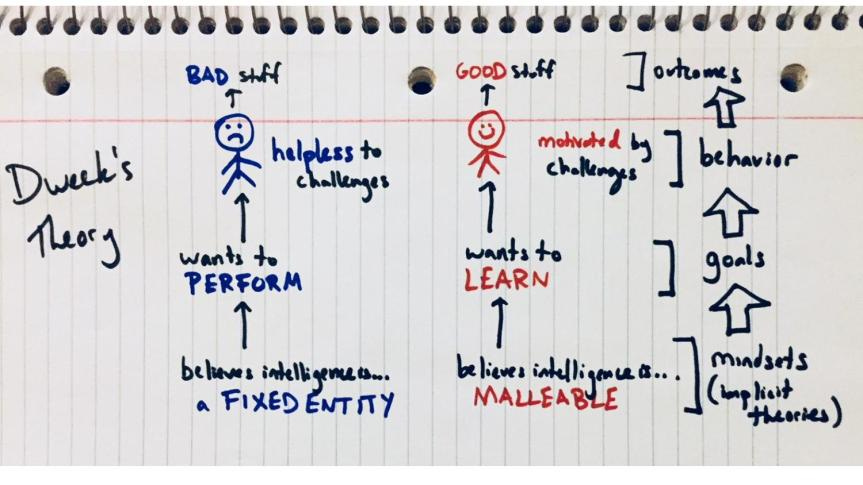 Dweck's
Theory
BAD stuff
helpless to
challenges
wants to
PERFORM
believes intelligence is...
a FIXED ENTITY
GOOD stuff
motivated by
challenges
wants to
LEARN
believes intelligence is...
MALLEABLE
outcomes
behavior
goals
mindsets
(implicit
theories)